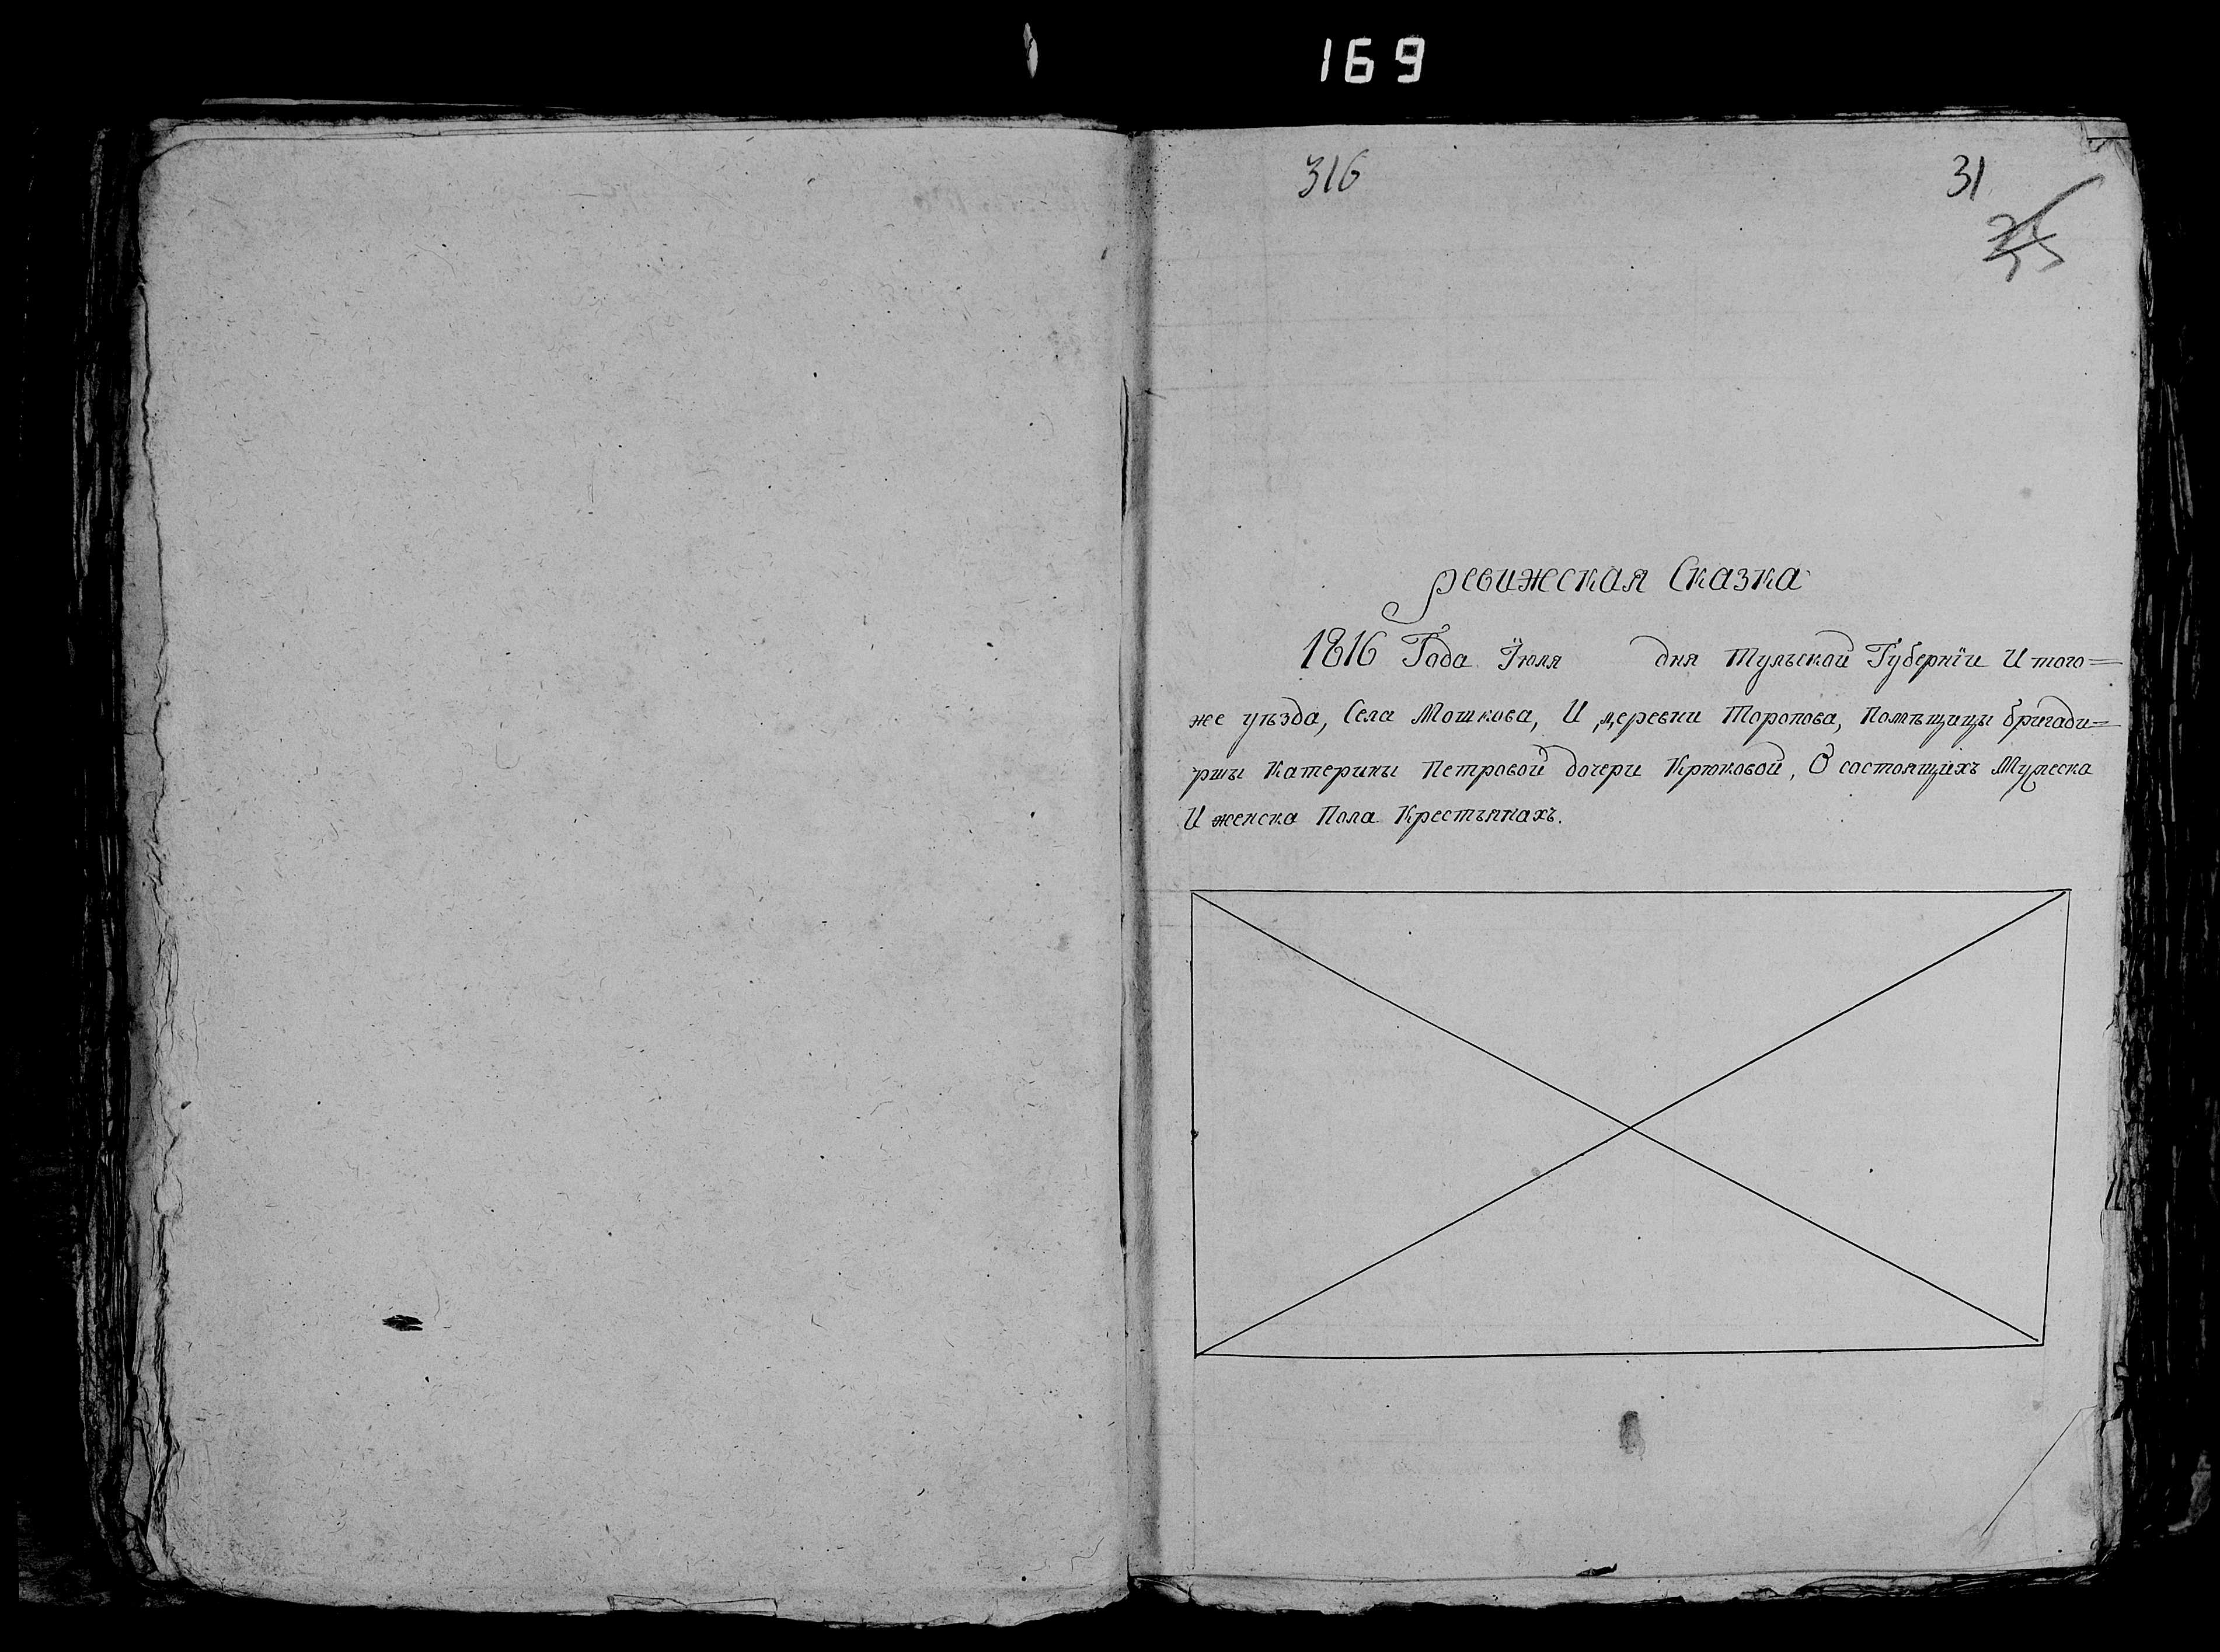 169
316
31
ревижская Сказка
1816 Года Июля дня Тульской Губерніи И того=
же уѣзда, Села Мошкова, И деревни Торопова, Помѣщицы бригади=
ршы Катерины Петровой дочери Крюковой, О состоящихъ Мужеска
И женска Пола Крестьянахъ.